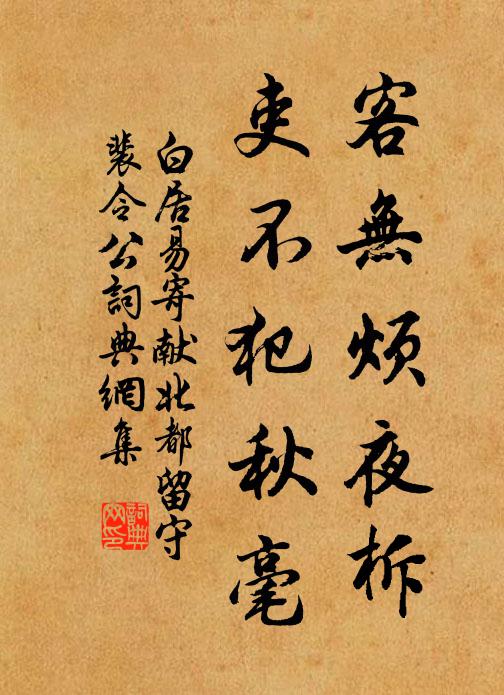 客無煩夜柝
吏不犯秋毫
白居易寄獻北都留守
裴令公詞典網集
詞典
网印